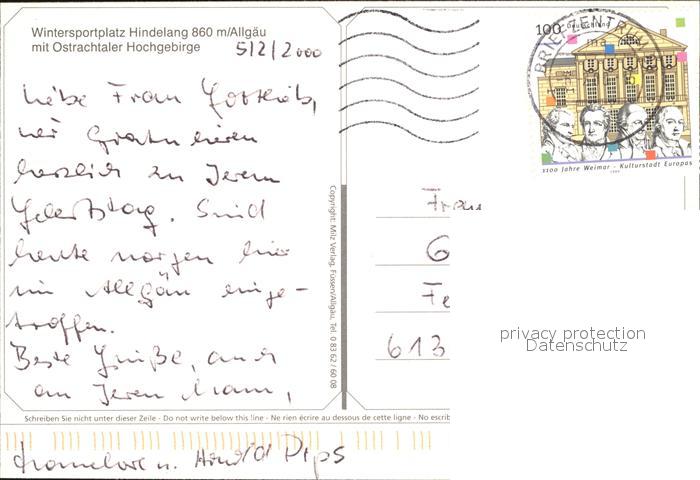 Wintersportplatz Hindelang 860 m/Allgäu
mit Ostrachtaler Hochgebirge
5/2/2000
liebe Frau Gottlieb,
wir Gratulieren
herzlich zu Ihrem
Geburtstag. Sind
heute morgen hier
im Allgäu einge-
troffen.
Beste Grüße, auch
an Ihren Mann,
Hannelore u. Harald Pips
Schreiben Sie nicht unter dieser Zeile - Do not write below this line - Ne rien écrire au dessous de cette ligne - No escrib
Copyright: Milz Verlag, Füssen/Allgäu, Tel. 0 83 62 / 60 08
100 Deutschland
BRIEFZENTR
1100 Jahre Weimar - Kulturstadt Europas
1999
Frau
G
Fe
613
privacy protection
Datenschutz